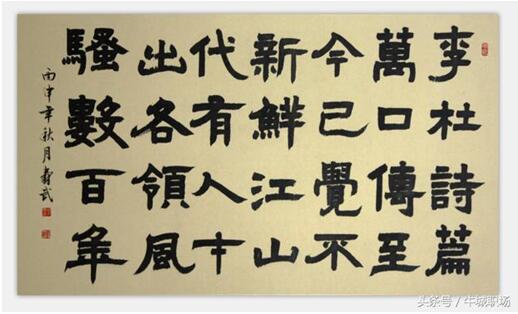 李杜詩篇
萬口傳至
今已覺不
新鮮江山
代有人才
出各領風
騷數百年
丙申年秋月壽武
头条号 / 牛城职场